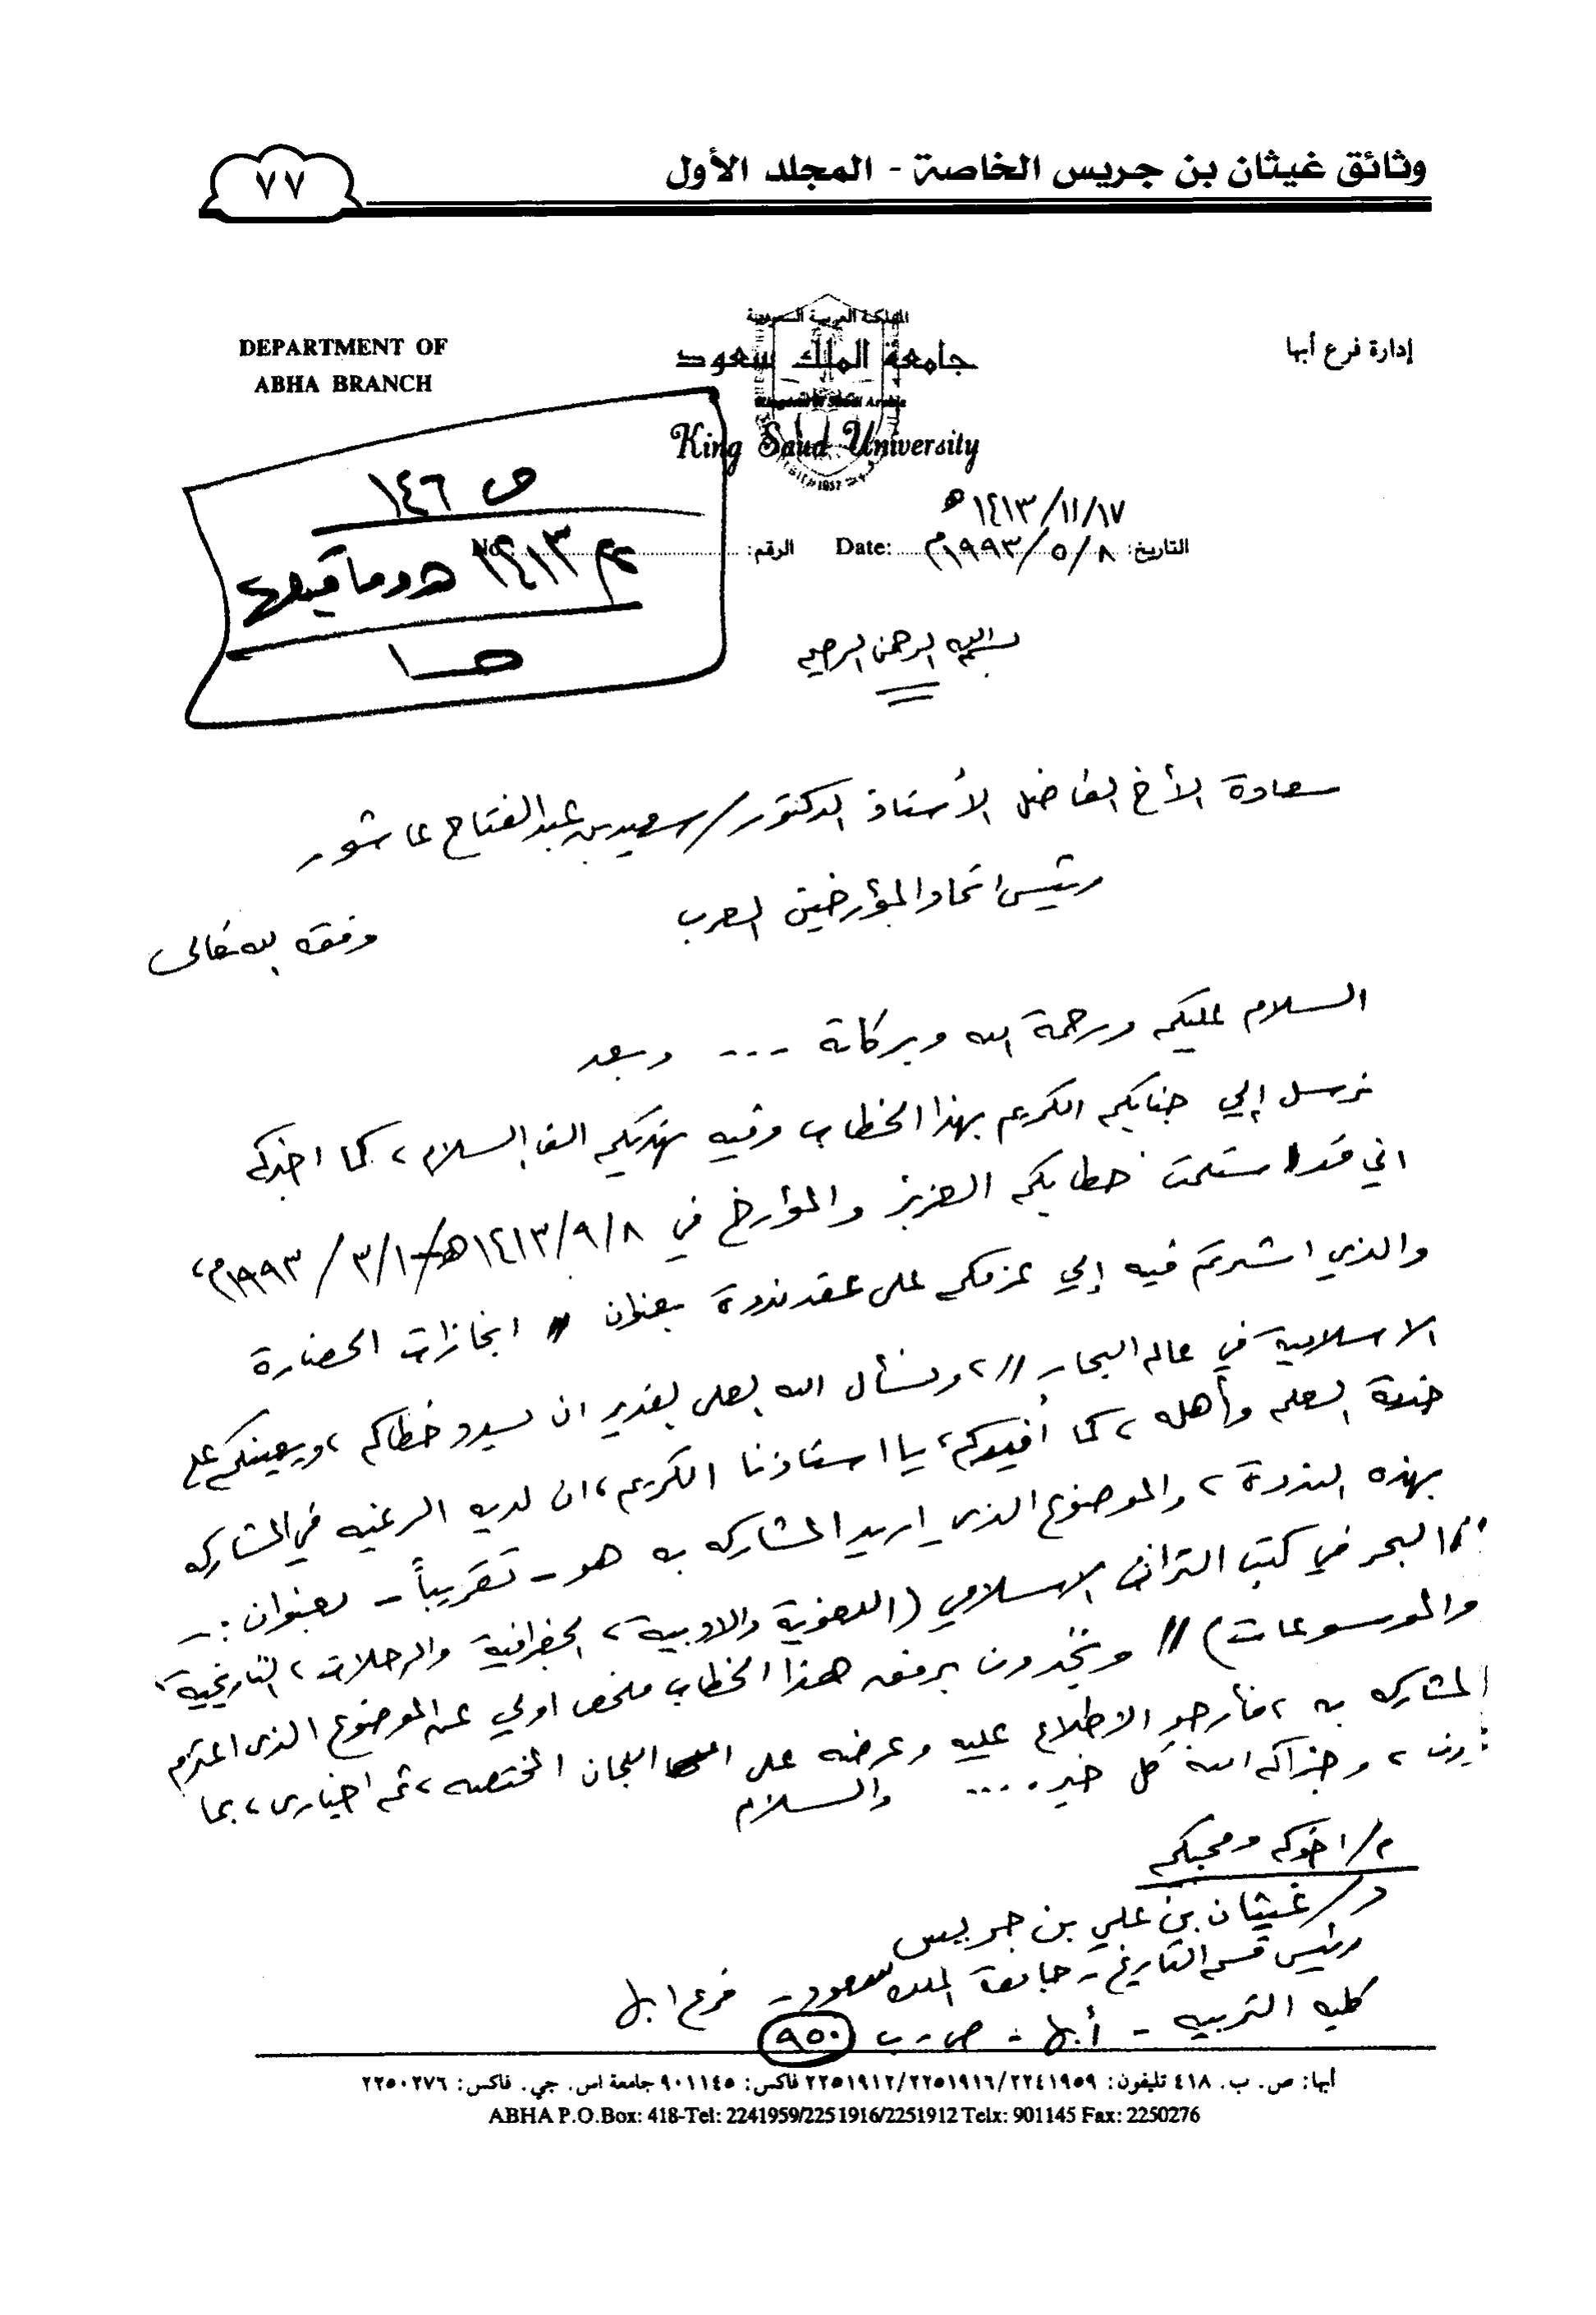 وثائق غيثان بن جريس الخاصة - المجلد الأول
٧٧
إدارة فرع أبها
المملكة العربية السعودية
جامعة الملك سعود
King Saud University
1957
DEPARTMENT OF
ABHA BRANCH
ص ١٤٦
١٤١٣ هـ وما قبلها
١٤١٣/١١/١٧هـ
التاريخ: ١٩٩٣/٥/٨م Date: الرقم: No.
بسم الله الرحمن الرحيم
سعادة الأخ الفاضل الأستاذ الدكتور/ سعيد بن عبدالفتاح عاشور
رئيس اتحاد المؤرخين العرب
وفقه الله تعالى
السلام عليكم ورحمة الله وبركاتة --- وبعد
نرسل إلي جنابكم الكريم بهذا الخطاب وفيه نهديكم الف السلام، كما اخبركم
اني قد استلمت خطابكم العزيز والمؤارخ في ١٤١٣/٩/٨هـ/ ١٩٩٣/٣/١م،
والذي اشرتم فيه إلي عزمكم على عقد ندوة بعنوان " انجازات الحضارة
الاسلامية في عالم البحار "، ونسأل الله العلى القدير ان يسدد خطاكم، ويعينكم على
خدمة العلم وأهله، كما أفيدكم، يا استاذنا الكريم، ان لديه الرغبه في المشاركه
بهذه الندوة، والموضوع الذى اريد المشاركه به هو - تقريباً - بعنوان :-
" البحر في كتب التراث الاسلامي (اللغوية والادبية، الجغرافية والرحلات، التاريخية،
والموسوعات) " وتجدون برفقه هذا الخطاب ملخص اولي عن الموضوع الذى المقترم
المشاركه به، فأرجو الاطلاع عليه وعرضه على اللجان المختصه، ثم اخباري، بما
، وجزاكم الله كل خير .... والسلام
م/ اخوكم ومحبكم
د/ غيثان بن علي بن جريس
رئيس قسم التاريخ - جامعة الملك سعود - فرع ابها
كليه التربيه - أبها - ص.ب (٩٥٠)
أبها: ص. ب. ٤١٨ تليفون: ٢٢٥١٩١٢/٢٢٥١٩١٦/٢٢٤١٩٥٩ فاكس: ٩٠١١٤٥ جامعة اس. جي. فاكس: ٢٢٥٠٢٧٦
ABHA P.O.Box: 418-Tel: 2241959/2251916/2251912 Telx: 901145 Fax: 2250276